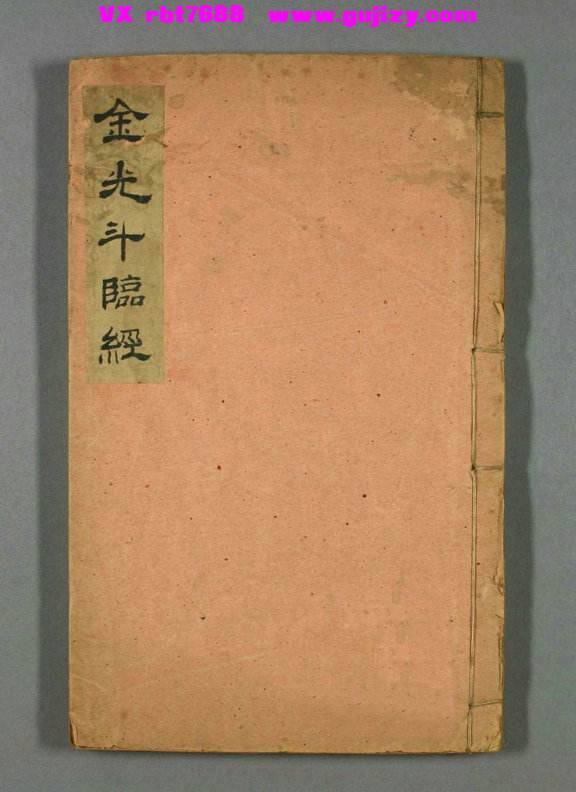 VX rbt7088 www.gujizy.com
金光斗臨經